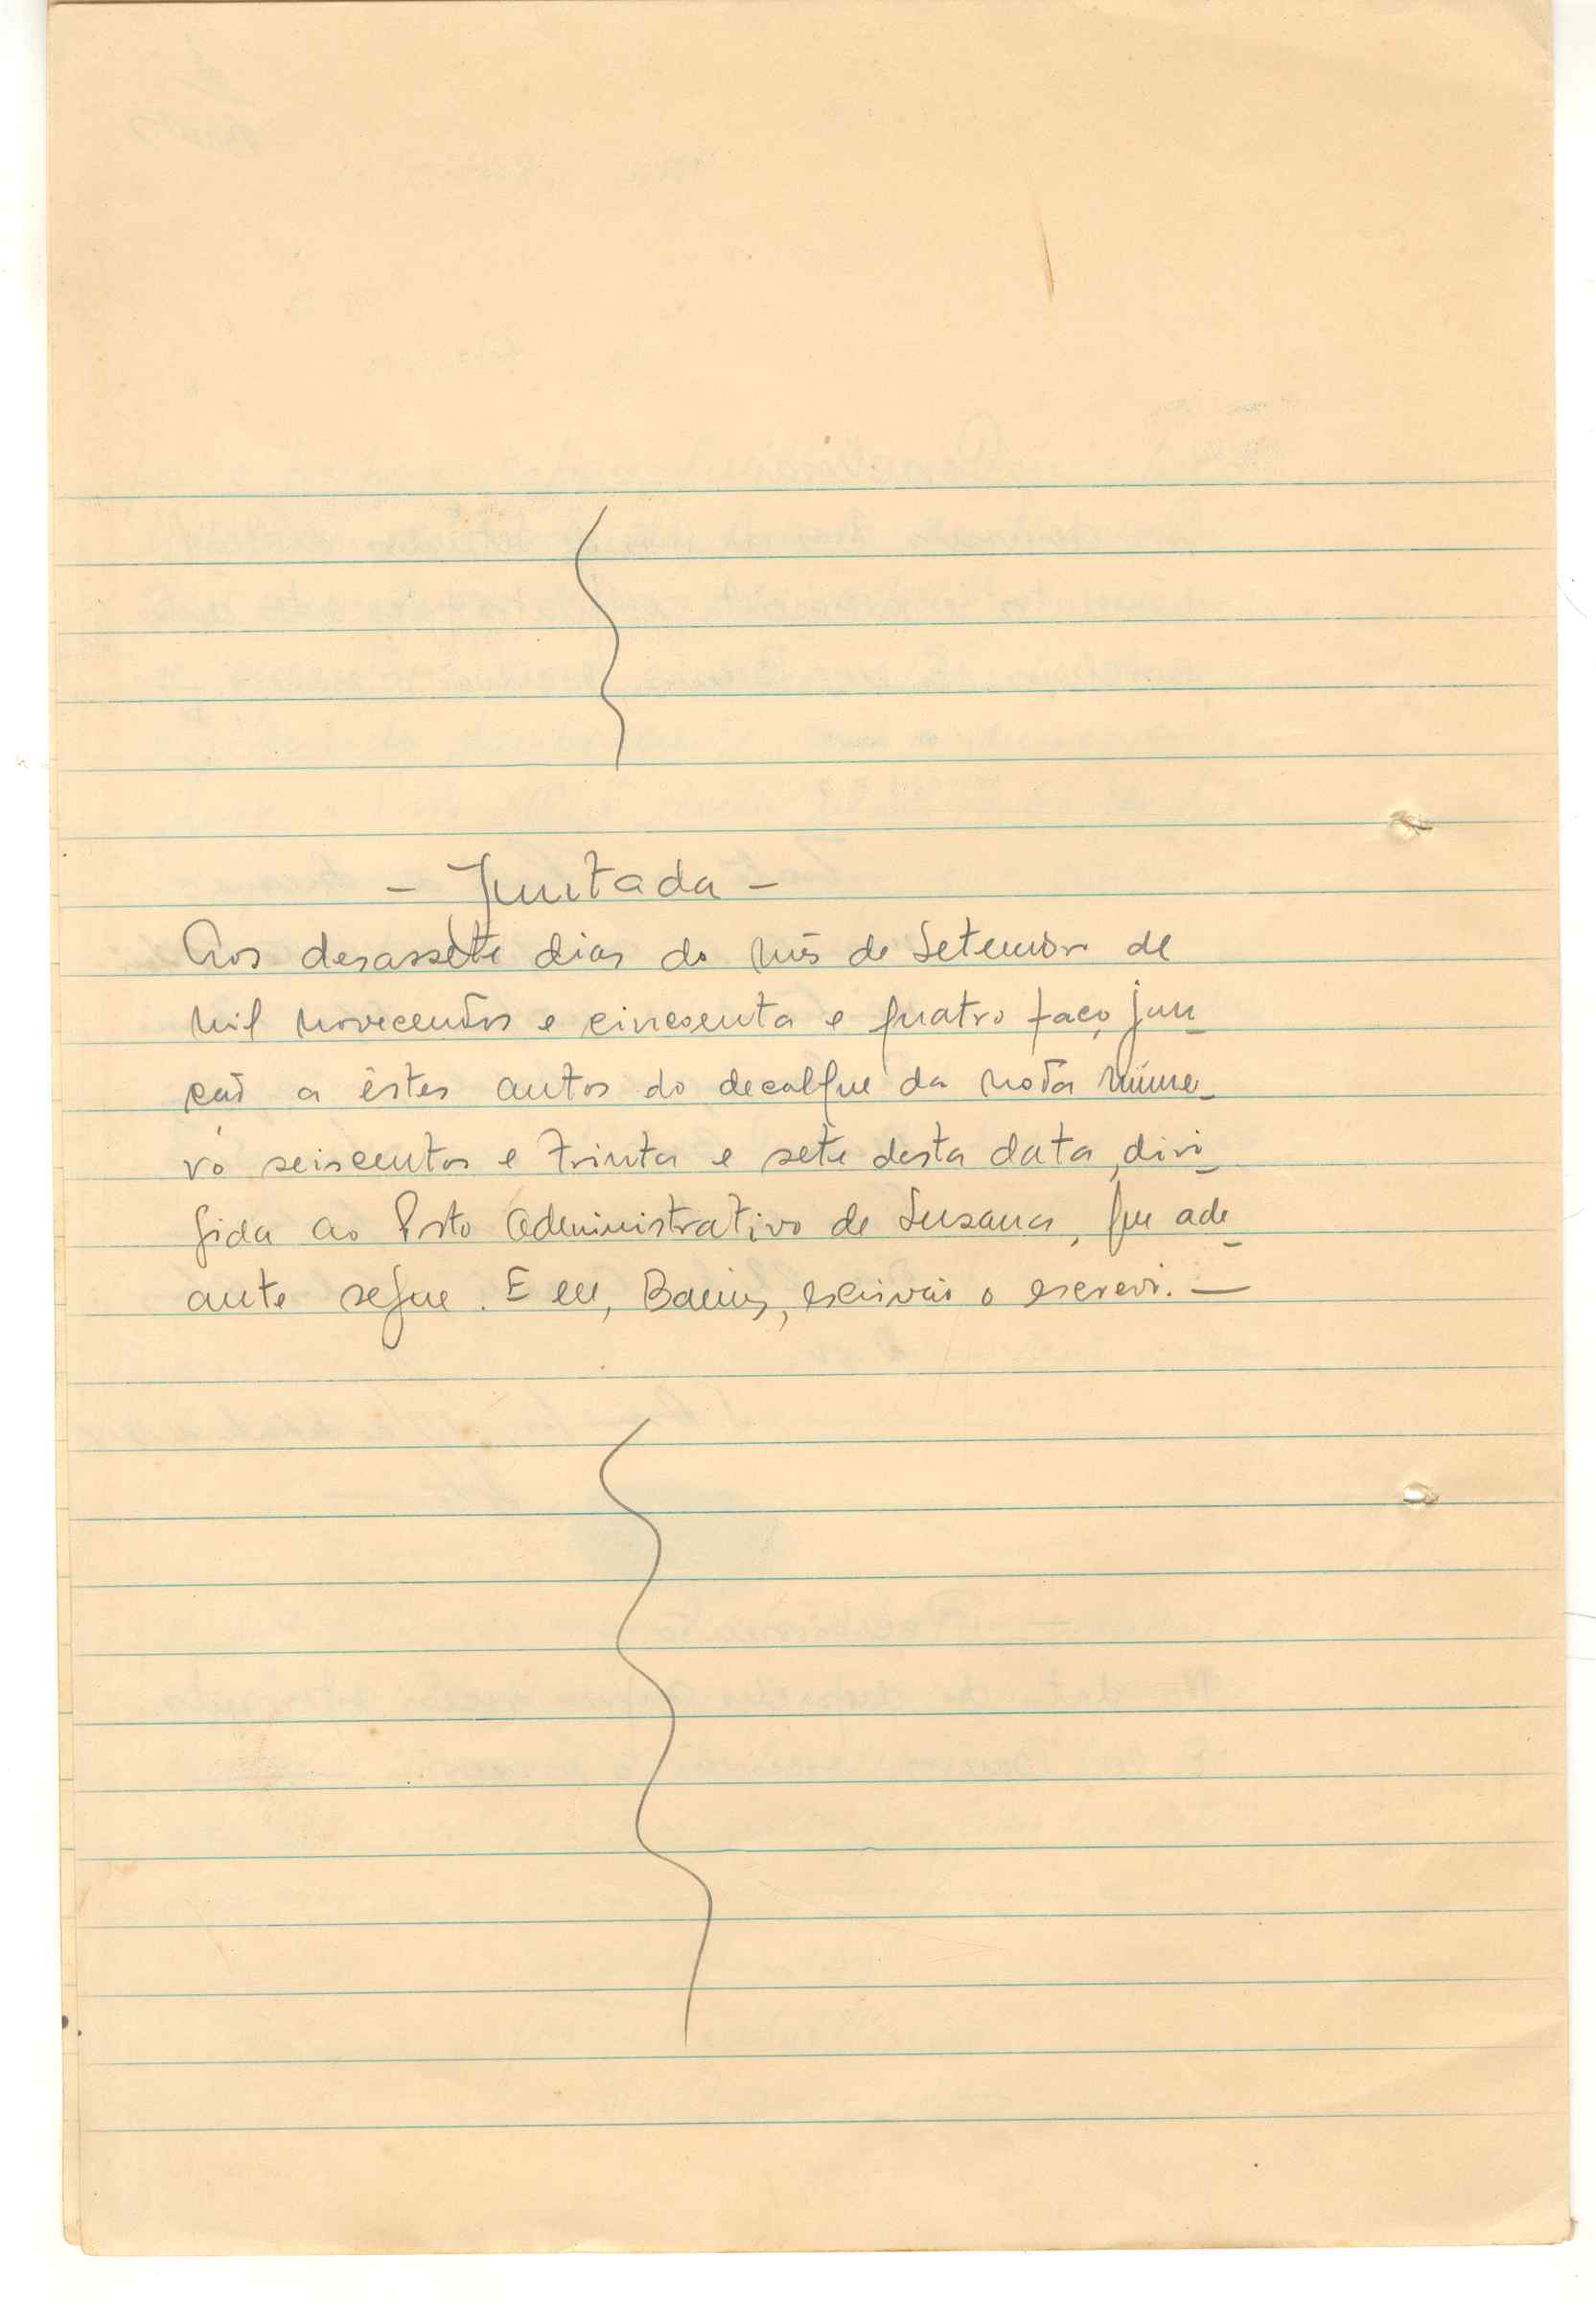 - Juntada -
Aos desassete dias do mês de Setembro de
mil novecentos e cincoenta e quatro faço jun_
ção a êstes autos do decalque da nota núme_
ro seiscentos e trinta e sete desta data, diri_
gida ao Posto Administrativo de Susana, que ade_
ante segue. E eu, escrivão o escrevi. —